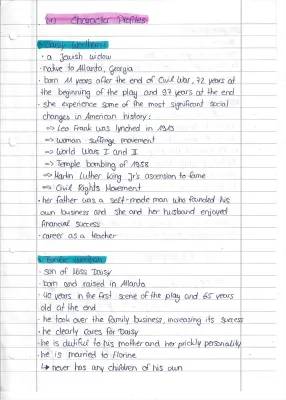 Character Profiles
Daisy Werthan
• a Jewish widow
• native to Atlanta, Georgia
• born 11 years after the end of Civil War, 72 years at
the beginning of the play and 97 years at the end
• she experience some of the most significant social
changes in American history:
=> Leo Frank was lynched in 1915
=> woman suffrage movement
=> World Wars I and II
=> Temple bombing of 1958
=> Martin Luther King Jr's ascension to fame
=> Civil Rights Movement
• her father was a self-made man who founded his
own business and she and her husband enjoyed
financial success
• career as a teacher
Boolie Werthan
• son of Miss Daisy
• born and raised in Atlanta
• 40 years in the first scene of the play and 65 years
old at the end
• he took over the family business, increasing its success
• he clearly cares for Daisy
• he is dutiful to his mother and her prickly personality
• he is married to Florine
↳ never has any children of his own